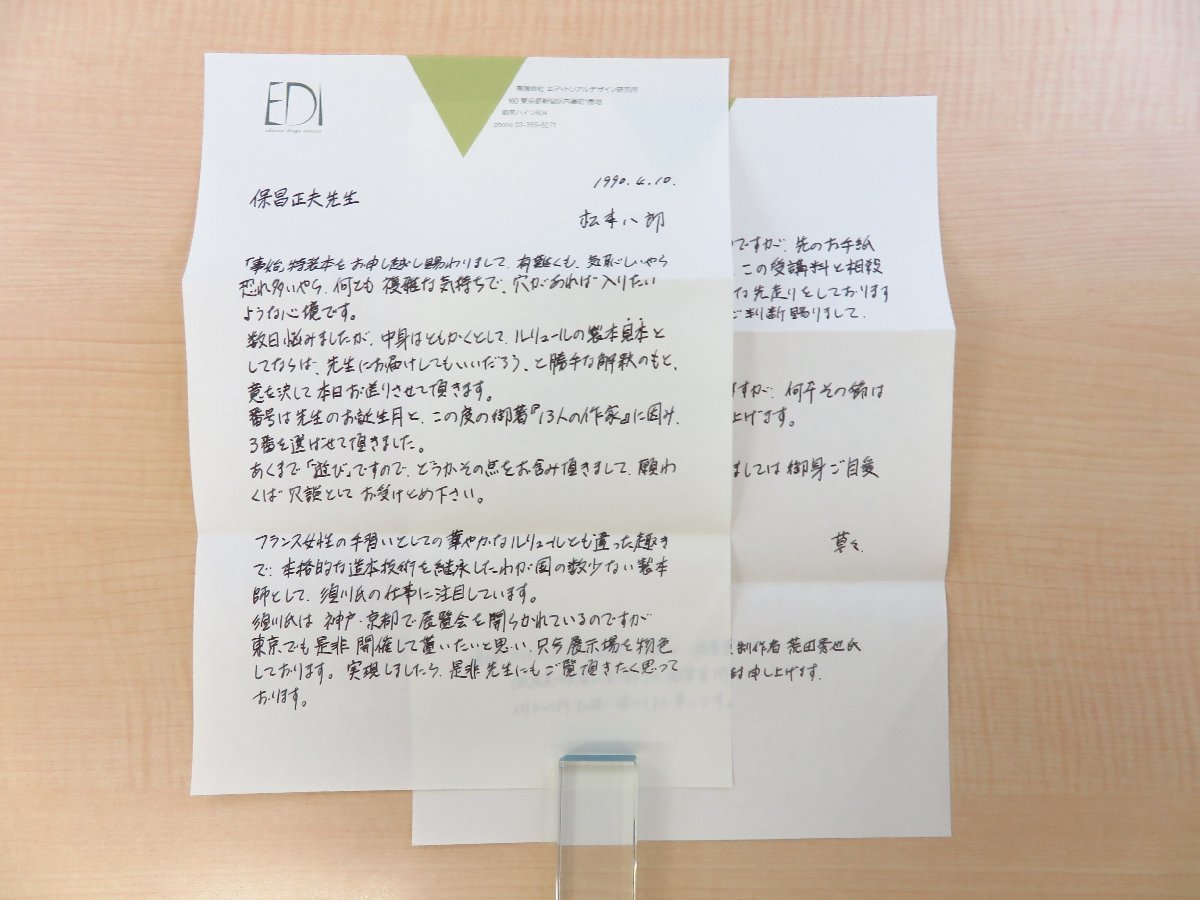 EDI
editorial design institute
有限会社 エディトリアルデザイン研究所
160 東京都新宿区内藤町1番地
御苑ハイツ604
phone 03-359-8271
1990.4.10.
保昌正夫先生
松本八郎
「事始」特装本をお申し越し賜わりまして、有難くも、気恥しいやら
恐れ多いやら、何とも複雑な気持ちで、穴があれば入りたい
ような心境です。
数日悩みましたが、中身はともかくとして、ルリュールの製本見本と
してならば、先生にお届けしてもいいだろう、と勝手な解釈のもと、
意を決して本日お送りさせて頂きます。
番号は先生のお誕生月と、この度の御著『13人の作家』に因み、
3番を選ばせて頂きました。
あくまで「遊び」ですので、どうかその点をお含み頂きまして、願わ
くば冗談としてお受けとめ下さい。
フランス女性の手習いとしての華やかなルリュールとも違った趣き
で、本格的な造本技術を継承したわが国の数少ない製本
師として、須川氏の仕事に注目しています。
須川氏は神戸・京都で展覧会を開らかれているのですが
東京でも是非開催して貰いたいと思い、只今展示場を物色
しております。実現しましたら、是非先生にもご覧頂きたく思って
おります。
ですが、先のお手紙
この受講料と相殺
な先走りをしております
ご判断賜りまして、
すが、何卒その節は
上げます。
ましては御身ご自愛
草々
制作者
氏
申し上げます。